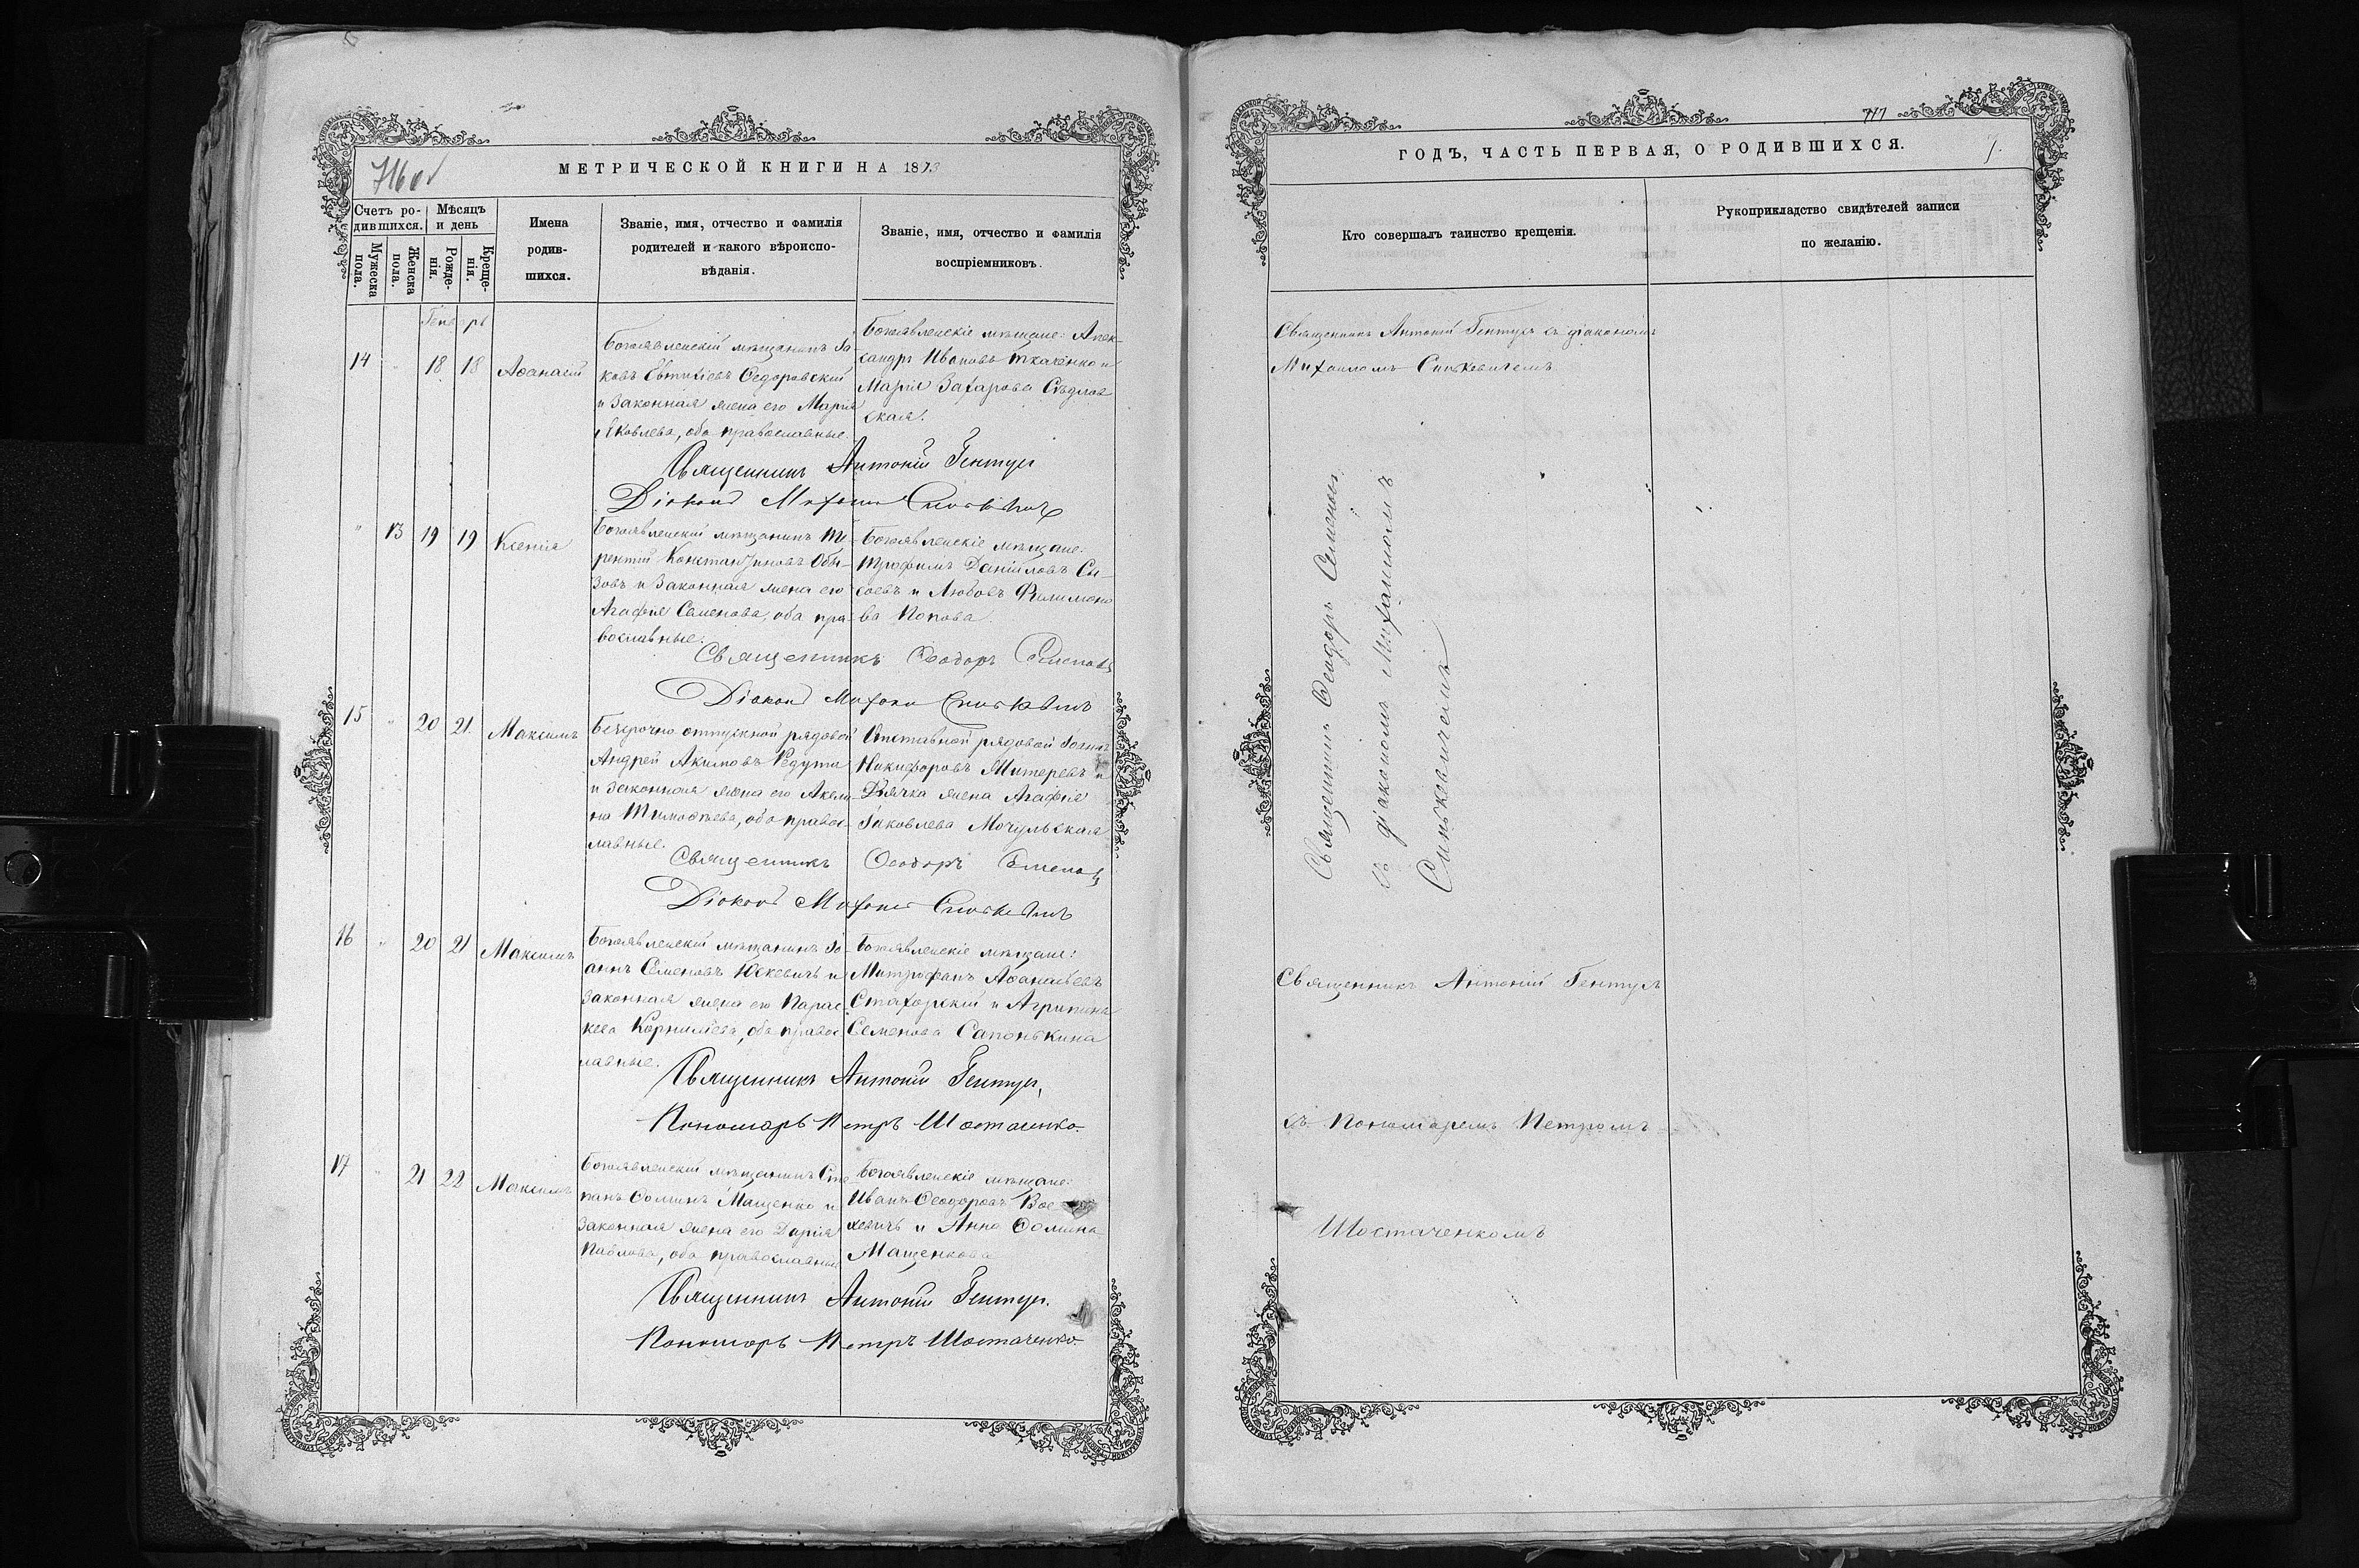 МЕТРИЧЕСКОЙ КНИГИ НА 1873
716об
Счетъ ро-
дившихся.
Мѣсяцъ
и день
Мужеска
пола.
Женска
пола.
Рожде-
нія.
Креще-
нія.
Имена
родив-
шихся.
Званіе, имя, отчество и фамилія
родителей и какого вѣроиспо-
вѣданія.
Званіе, имя, отчество и фамилія
воспріемниковъ.
Генварь
14 " 18 18 Аѳанасій
Богоявленскій мѣщанинъ Іа-
ковъ Евтихіевъ Ѳедоровскій
и законная жена его Марія
Яковлева, оба православные.
Богоявленскіе мѣщане: Алек-
сандръ Ивановъ Ткаченко и
Марія Захарова Сѣдлов
ская.
Священникъ Антоній Гентуш
Діаконъ Михаилъ Синькевичъ
" 13 19 19 Ксенія
Богоявленскій мѣщанинъ Те-
рентій Константиновъ Обы-
зовъ и законная жена его
Агафія Семенова, оба пра-
вославные.
Богоявленскіе мѣщане:
Трофимъ Даніиловъ Сы-
соевъ и Любовь Филимоно
ва Попова.
Священникъ Ѳеодоръ Семеновъ
Діаконъ Михаилъ Синькевичъ
15 " 20 21 Максимъ
Безсрочно отпускной рядовой
Андрей Акимовъ Редута
и законная жена его Акили-
на Тимоѳеева, оба правос-
лавные.
Отставной рядовой Іоаннъ
Никифоровъ Митеревъ и
Дьячка жена Агафія
Іаковлева Мочульская
Священникъ Ѳеодоръ Семеновъ
Діаконъ Михаилъ Синькевичъ
16 " 20 21 Максимъ
Богоявленскій мѣщанинъ Іо-
аннъ Семеновъ Юскевичъ и
законная жена его Парас
кева Корнилiева, оба правос
лавные.
Богоявленскіе мѣщане:
Митрофанъ Аѳанасьевъ
Стахорскій и Агрипина
Семенова Сапонькина
Священникъ Антоній Гентуш,
Пономарь Петръ Шостаченко.
17 " 21 22 Максимъ
Богоявленскій мѣщанинъ Сте
панъ Ѳоминъ Мащенко и
законная жена его Дарія
Павлова, оба православные
Богоявленскіе мѣщане:
Иванъ Ѳеодоровъ Вос
кевичъ и Анна Ѳомина
Мащенкова
Священникъ Антоній Гентуш.
Пономарь Петръ Шостаченко.
717
ГОДЪ, ЧАСТЬ ПЕРВАЯ, О РОДИВШИХСЯ.
7.
Кто совершалъ таинство крещенія.
Рукоприкладство свидѣтелей записи
по желанію.
Священникъ Антоній Гентушъ съ діакономъ
Михаиломъ Синькевичемъ
Священникъ Ѳеодоръ Семеновъ
съ діакономъ Михаиломъ
Синькевичемъ
Священникъ Антоній Гентушъ
съ Пономаремъ Петромъ
Шостаченкомъ